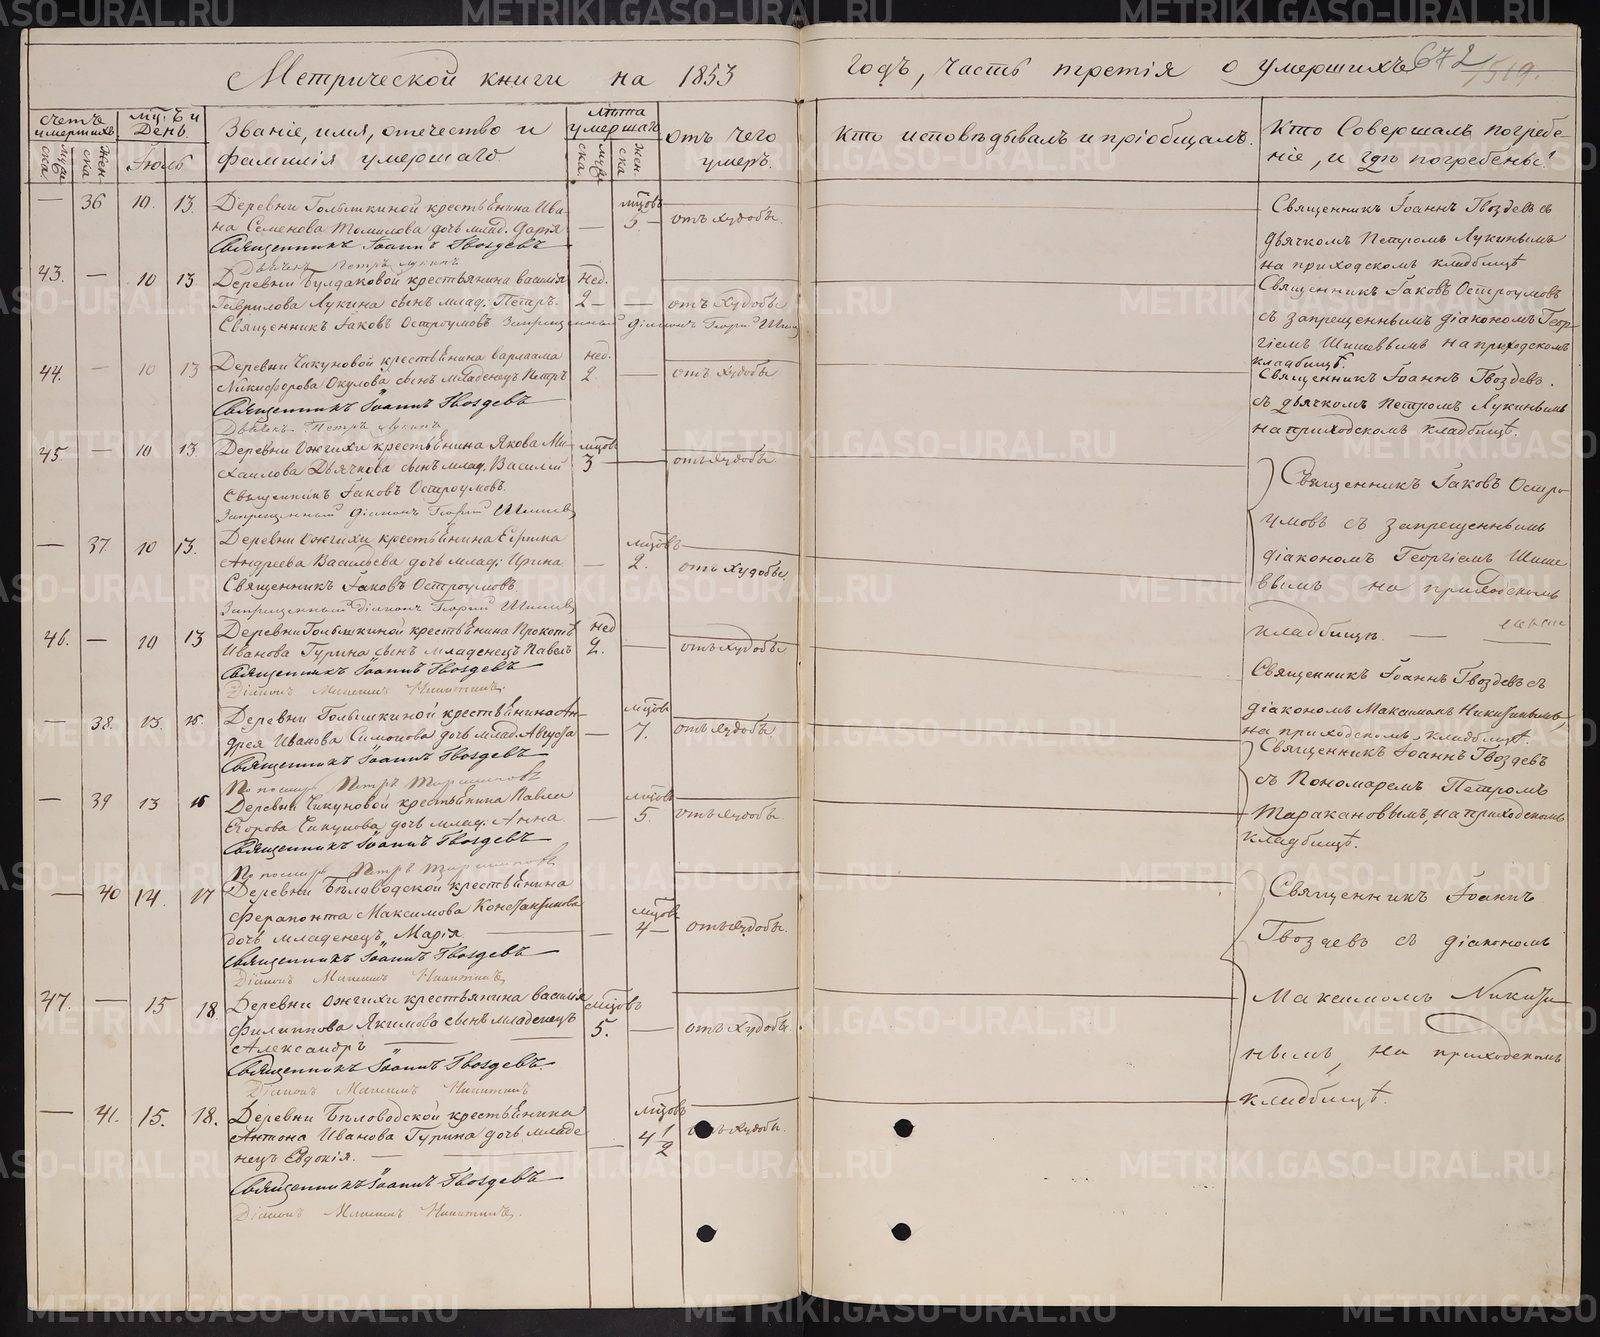 Метрической книги на 1853
годъ, часть третія о умершихъ 672
519.
счетъ умершихъ
Муже-ска
Жен-ска
Мц:ъ и День.
Іюль
Званіе, имя, отечество и
фамилія умершаго.
Лѣта умершаго
Муже-ска.
Жен-ска
Отъ чего
умеръ.
Кто исповѣдывалъ и пріобщалъ.
Кто Совершалъ погребе-
ніе, и гдѣ погребены?
— 36 10. 13. Деревни Голышкиной крестьянина Ива- мцовъ
на Семенова Томилова дочь млад. Дарья — 5. — отъ худобы.
Священникъ Іоаннъ Гвоздевъ
Дьячекъ Петръ Лукинъ
Священникъ Іоаннъ Гвоздевъ съ
дьячкомъ Петромъ Лукинымъ
на приходскомъ кладбищѣ
43. — 10 13 Деревни Булдаковой крестьянина василія нед.
Гаврилова Лукина сынъ млад: Петръ. 2 — — отъ худобы
Священникъ Іаковъ Остроумовъ Запрещенный діаконъ Георгій Шише
Священникъ Іаковъ Остроумовъ
съ запрещеннымъ діакономъ Геор-
гіемъ Шишевымъ на приходскомъ
кладбищѣ.
44. — 10 13 Деревни Чикуновой крестьянина варлаама нед.
Никифорова Окулова сынъ младенецъ Петръ 2 — отъ худобы
Священникъ Іоаннъ Гвоздевъ
Дьячекъ Петръ Лукинъ
Священникъ Іоаннъ Гвоздевъ.
съ дьячкомъ Петромъ Лукинымъ
на приходскомъ кладбищѣ.
45 — 10 13. Деревни Ожгихи крестьянина Якова Ми- мцовъ
хаилова Дьячкова сынъ млад. Василій 3 — отъ худобы
Священникъ Іаковъ Остроумовъ.
Запрещенный діаконъ Георгій Шишевъ
Священникъ Іаковъ Остро-
умовъ съ запрещеннымъ
діакономъ Георгіемъ Шише
вымъ на приходскомъ
кладбищѣ. —
— 37. 10 13. Деревни Ожгихи крестьянина Ефима мцовъ
Андреева Васильева дочь млад: Ирина — 2. отъ худобы.
Священникъ Іаковъ Остроумовъ.
Запрещенный діаконъ Георгій Шишевъ
46. — 10 13 Деревни Голышкиной крестьянина Прокопія нед
Иванова Гурина сынъ младенецъ Павелъ 2. — отъ худобы
Священникъ Іоаннъ Гвоздевъ
Діаконъ Максимъ Никитинъ.
Священникъ Іоаннъ Гвоздевъ съ
діакономъ Максимомъ Никитинымъ,
на приходскомъ кладбищѣ.
— 38. 13. 15. Деревни Голышкиной крестьянина Ан- мцовъ
дрея Иванова Симонова дочь млад. Августа — 7. отъ худобы
Священникъ Іоаннъ Гвоздевъ
Петръ Таракановъ
Священникъ Іоаннъ Гвоздевъ
съ Пономаремъ Петромъ
Таракановымъ, на приходскомъ
кладбищѣ.
— 39 13 15 Деревни Чикуновой крестьянина Павла мцовъ
Егорова Чикунова дочь млад: Анна. — 5. отъ худобы.
Священникъ Іоаннъ Гвоздевъ
Петръ Таракановъ
— 40 14. 17 Деревни Бѣловодской крестьянина
Ферапонта Максимова Константинова мцовъ
дочь младенецъ Марія. — — 4 — отъ худобы.
Священникъ Іоаннъ Гвоздевъ
Діаконъ Максимъ Никитинъ
Священникъ Іоаннъ
Гвоздевъ съ діакономъ
Максимомъ Никити-
нымъ, на приходскомъ
кладбищѣ.
47. — 15 18. Деревни Ожгихи крестьянина василія мцовъ
Филиппова Якимова сынъ младенецъ 5. — отъ худобы.
Александръ —
Священникъ Іоаннъ Гвоздевъ.
Діаконъ Максимъ Никитинъ
— 41. 15. 18. Деревни Бѣловодской крестьянина мцовъ
Антона Иванова Гурина дочь младе — 4 1/2 отъ худобы.
нецъ Евдокія. —
Священникъ Іоаннъ Гвоздевъ
Діаконъ Максимъ Никитинъ.
METRIKI.GASO-URAL.RU